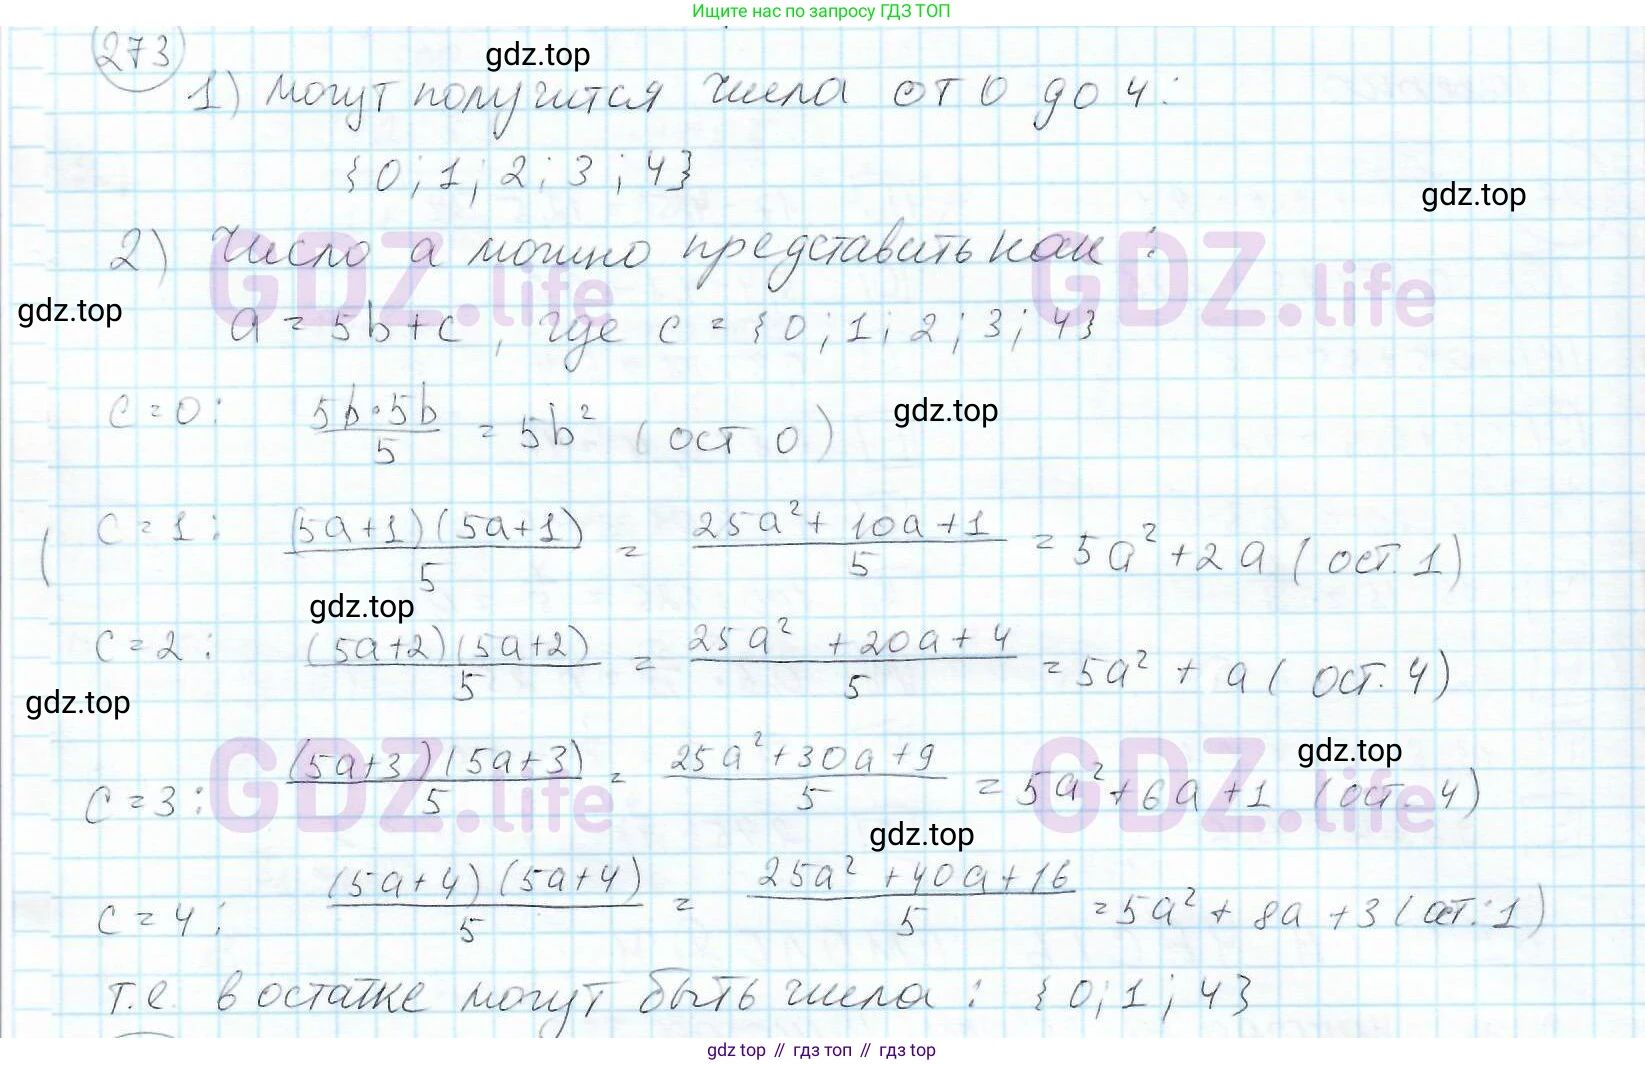 Ищите нас по запросу ГДЗ ТОП
273
gdz.top
1) могут получится числа от 0 до 4:
{0; 1; 2; 3; 4}
gdz.top
2) Число a можно представить как:
GDZ.life GDZ.life
gdz.top
a = 5b+c, где c = {0; 1; 2; 3; 4}
c=0: 5b·5b/5 = 5b² (ост 0)
gdz.top
c=1: (5a+1)(5a+1)/5 = 25a²+10a+1/5 = 5a²+2a (ост. 1)
gdz.top
c=2: (5a+2)(5a+2)/5 = 25a²+20a+4/5 = 5a²+a (ост. 4)
gdz.top
gdz.top
c=3: (5a+3)(5a+3)/5 = 25a²+30a+9/5 = 5a²+6a+1 (ост. 4)
GDZ.life GDZ.life
gdz.top
c=4: (5a+4)(5a+4)/5 = 25a²+40a+16/5 = 5a²+8a+3 (ост. 1)
т.е. в остатке могут быть числа: {0; 1; 4}
gdz top // гдз топ // гдз top